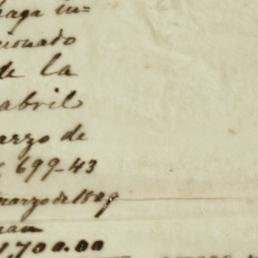 haga in=
cionado
de la
abril
arzo de
699-43
marzo de 1849
1,700.00